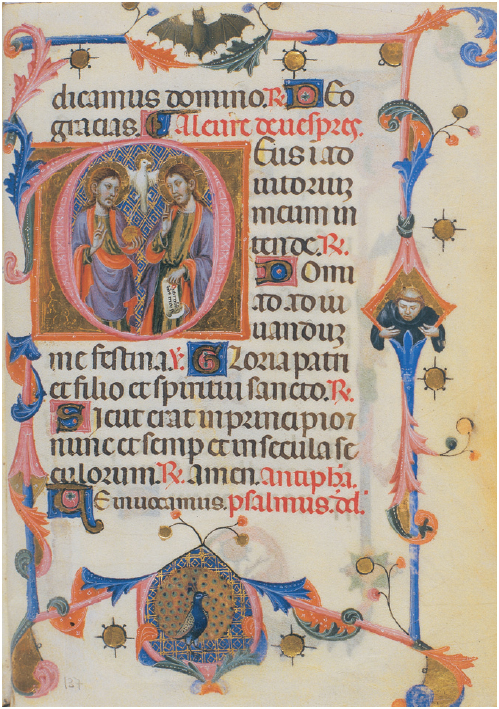 dicamus domino. R. DEo
gracias. A leure de uespres.
DEus i ad
iutoriuz
meum in
tende. R.
Domi
ad ad iu
uanduz
me festina. V. Gloria patri
et filio et spiritui sancto. R.
Sicut erat in principio 7
nunc et semp et in secula se
culorum. R. Amen. Antipha.
TE inuocamus. psalmus.
127